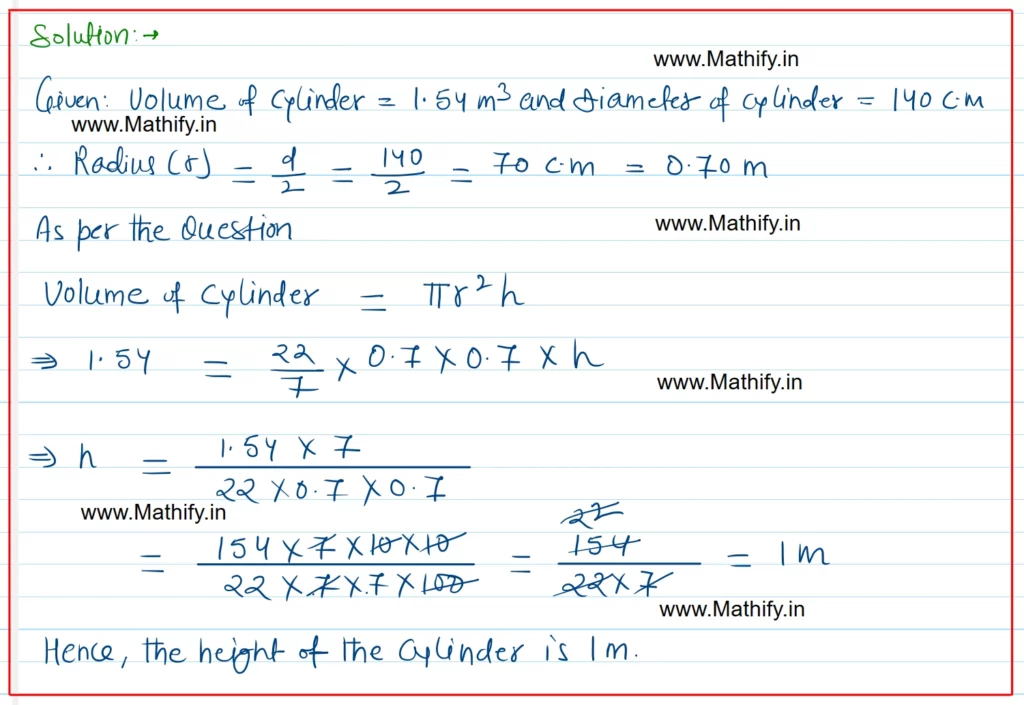 Solution:→
www.Mathify.in
Given: Volume of Cylinder = 1.54 m³ and diameter of cylinder = 140 c.m
www.Mathify.in
∴ Radius (r) = d/2 = 140/2 = 70 c.m = 0.70 m
As per the Question
www.Mathify.in
Volume of Cylinder = πr²h
⇒ 1.54 = 22/7 × 0.7 × 0.7 × h
www.Mathify.in
⇒ h = 1.54 × 7 / 22 × 0.7 × 0.7
www.Mathify.in
22
= 154 × 7 × 10 × 10 / 22 × 7 × 7 × 100 = 154 / 22 × 7 = 1 m
www.Mathify.in
Hence, the height of the Cylinder is 1m.